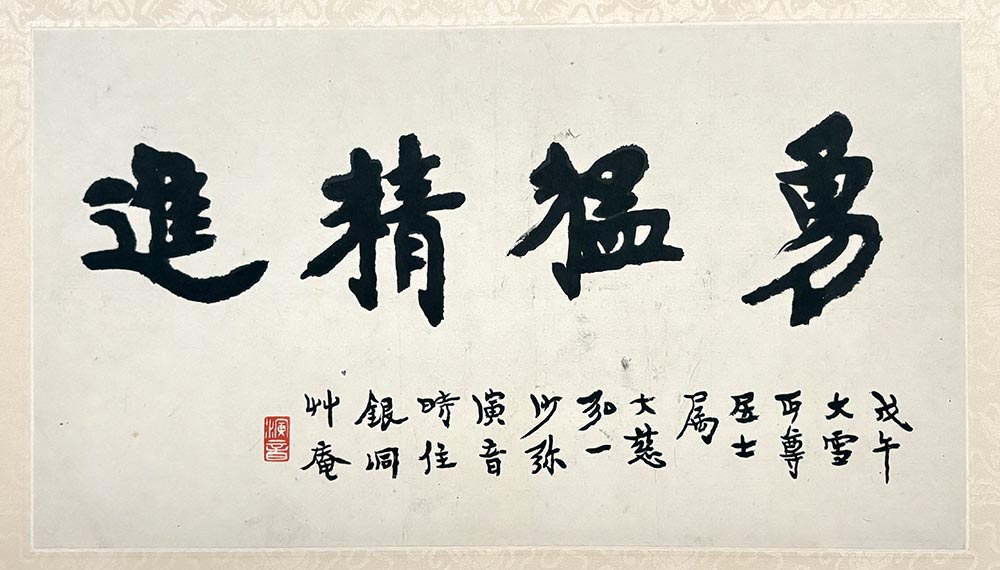 勇猛精進
戊午
大雪
丏尊
居士
属
大慈
弘一
沙弥
演音
時住
銀洞
艸庵
演音